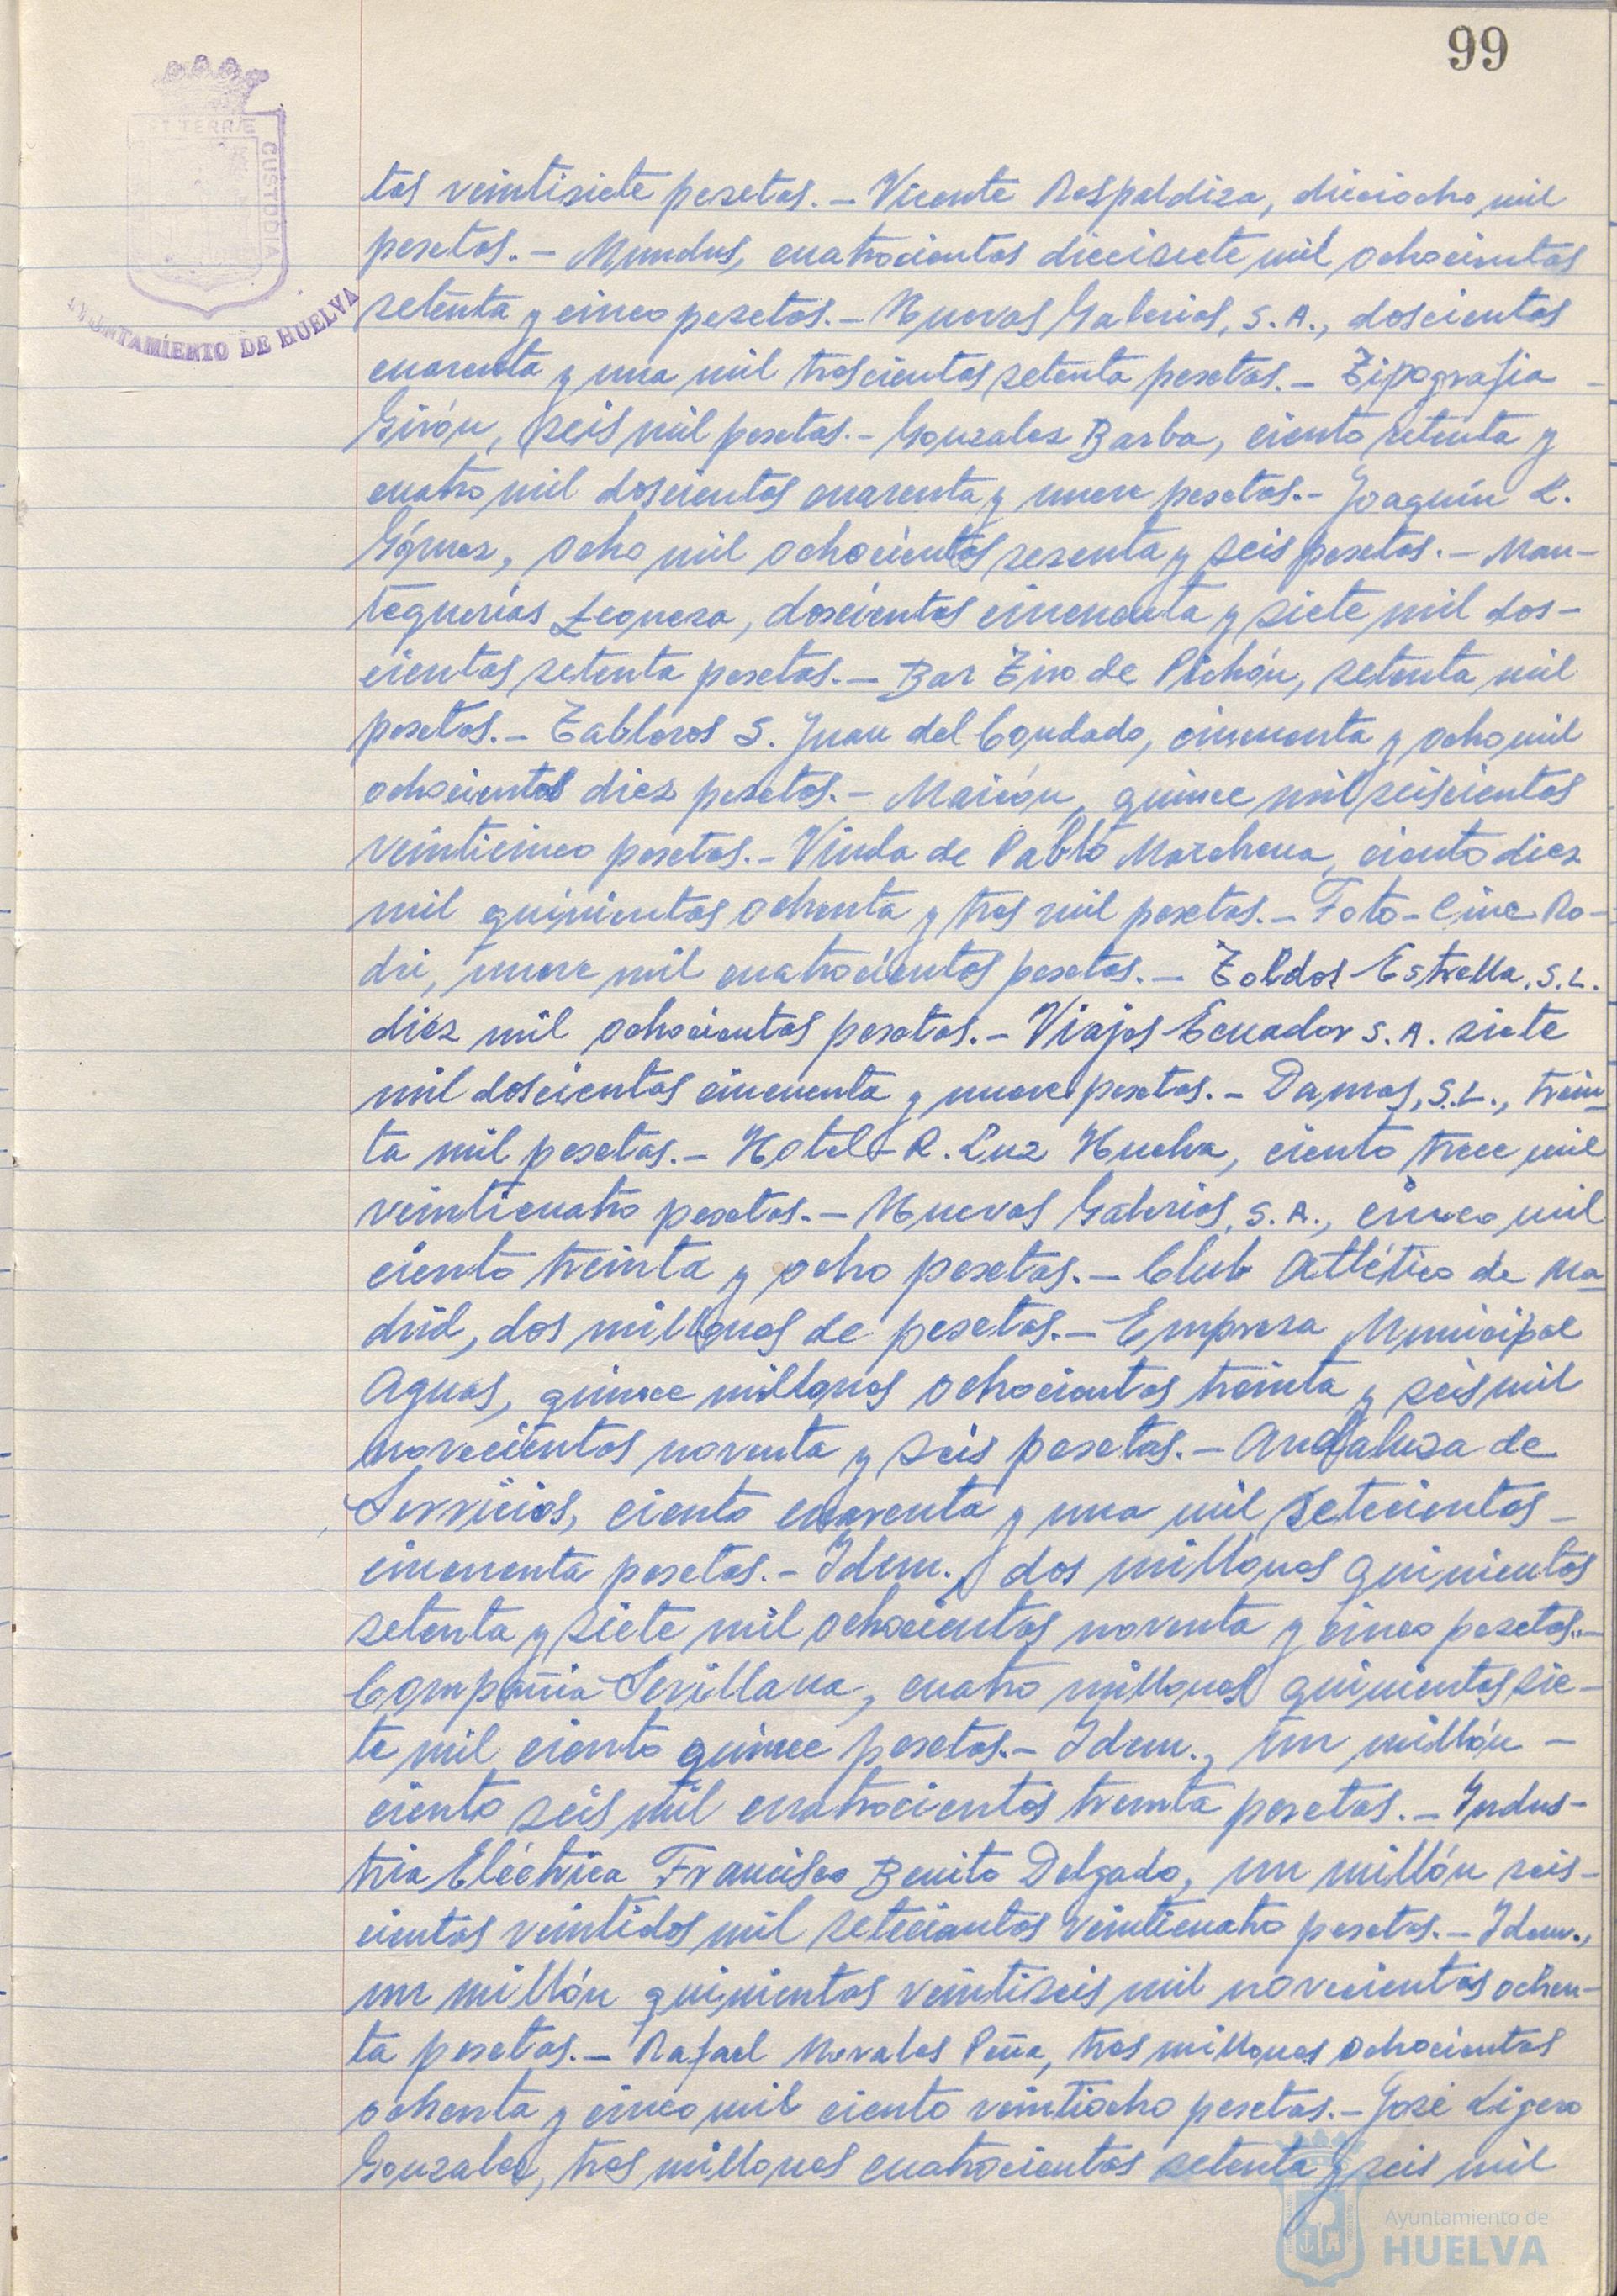 99
ET TERRÆ
CUSTODIA
AYUNTAMIENTO DE HUELVA
tas veintisiete pesetas.- Vicente Respaldiza, dieciocho mil
pesetas.- Mundus, cuatrocientas diecisiete mil ochocientas
setenta y cinco pesetas.- Nuevas Galerias, S.A., doscientas
cuarenta y una mil trescientas setenta pesetas.- Tipografia -
Girón, seis mil pesetas.- Gonzalez Barba, ciento setenta y
cuatro mil doscientas cuarenta y nueve pesetas.- Joaquín L.
Gómez, ocho mil ochocientas sesenta y seis pesetas.- Man-
tequerías Leonesa, doscientas cincuenta y siete mil dos-
cientas setenta pesetas.- Bar Tiro de Pichón, setenta mil
pesetas.- Tableros S. Juan del Condado, cincuenta y ocho mil
ochocientas diez pesetas.- quince mil seiscientas
veinticinco pesetas.- Viuda de Pablo Marchena, ciento diez
mil quinientas ochenta y tres mil pesetas.- Foto-Cine Ro-
dri, nueve mil cuatrocientas pesetas.- Toldos Estrella, S.L.
diez mil ochocientas pesetas.- Viajes Ecuador S.A. siete
mil doscientas cincuenta y nueve pesetas.- Damas, S.L., trein-
ta mil pesetas.- Hotel-R. Luz Huelva, ciento trece mil
veinticuatro pesetas.- Nuevas Galerias, S.A., cinco mil
ciento treinta y ocho pesetas.- Club Atlético de Ma-
drid, dos millones de pesetas.- Empresa Municipal
Aguas, quince millones ochocientas treinta y seis mil
novecientas noventa y seis pesetas.- Andaluza de
Servicios, ciento cuarenta y una mil setecientas -
cincuenta pesetas.- Idem., dos millones quinientas
setenta y siete mil ochocientas noventa y cinco pesetas.-
Compañia Sevillana, cuatro millones quinientas sie-
te mil ciento quince pesetas.- Idem., un millón -
ciento seis mil cuatrocientas treinta pesetas.- Indus-
tria Eléctrica Francisco Benito Delgado, un millón seis-
cientas veintidos mil setecientas veinticuatro pesetas.- Idem.,
un millón quinientas veintiseis mil novecientas ochen-
ta pesetas.- Rafael Morales Peña, tres millones ochocientas
ochenta y cinco mil ciento veintiocho pesetas.- José Ligero
Gonzalez, tres millones cuatrocientas setenta y seis mil
Ayuntamiento de
HUELVA